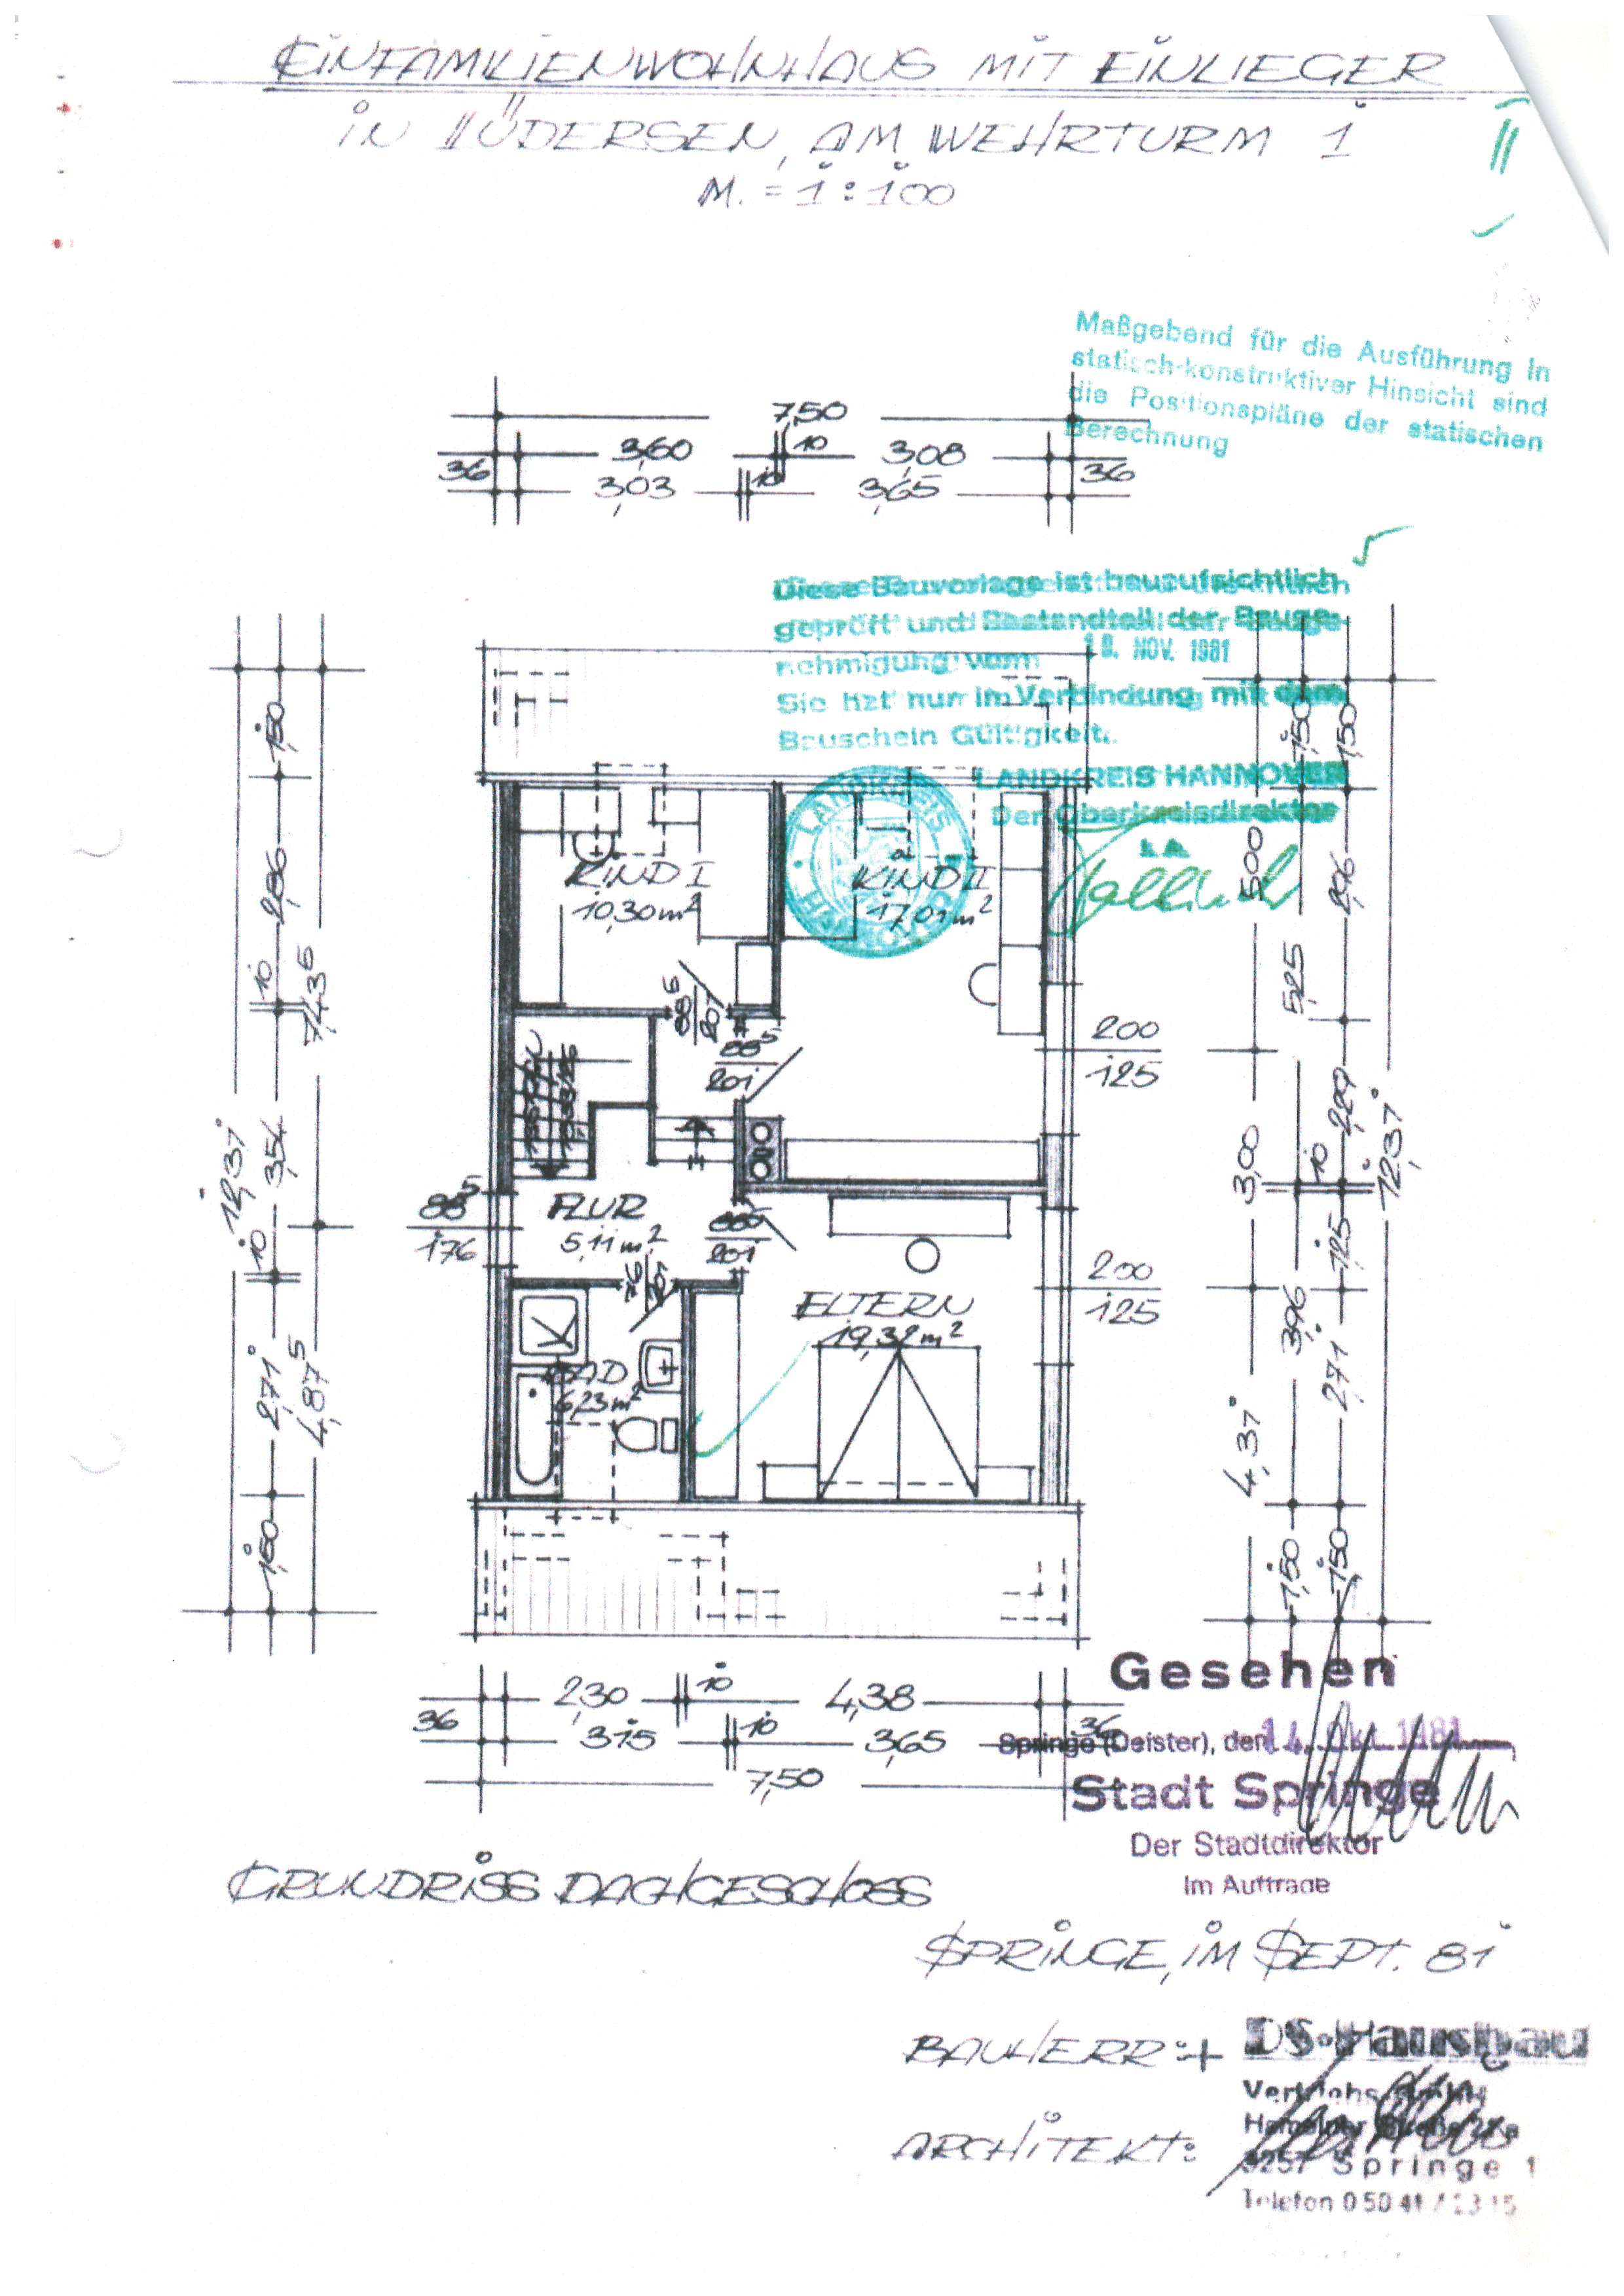 EINFAMILIENWOHNHAUS MIT EINLIEGER
IN LÜDERSEN, AM WEHRTURM 1
M. = 1:100
II
Maßgebend für die Ausführung in
statisch-konstruktiver Hinsicht sind
die Positionspläne der statischen
Berechnung
7,50
3,60 10 3,08
36 3,03 10 3,65 36
Diese Bauvorlage ist bauaufsichtlich
geprüft und Bestandteil der Bauge-
nehmigung vom
18. NOV. 1981
Sie hat nur in Verbindung mit dem
Bauschein Gültigkeit.
LANDKREIS HANNOVER
Der Oberkreisdirektor
I.A.
LANDKREIS HANNOVER
KIND I
10,30 m²
KIND II
17,01 m²
88⁵
201
88⁵
201
200
125
FLUR
5,11 m²
88⁵
176
88⁵
201
76
201
200
125
ELTERN
19,32 m²
BAD
6,23 m²
1,50
2,86
10
3,54
10
2,71
1,50
12,31
7,43⁵
4,87⁵
5,00
3,00
4,37
1,50
5,25
3,96
1,50
1,50
2,96
2,29
10
1,25
2,71
1,50
12,37
2,30 10 4,38
36 3,15 10 3,65 36
7,50
Gesehen
Springe (Deister), den 14. Okt. 1981
Stadt Springe
Der Stadtdirektor
Im Auftrage
GRUNDRISS DACHGESCHOSS
SPRINGE, IM SEPT. 81
BAUHERR: +
DS-Hausbau
Vertriebs GmbH
Hamelner Straße
3257 Springe 1
Telefon 0 50 41 /
ARCHITEKT: